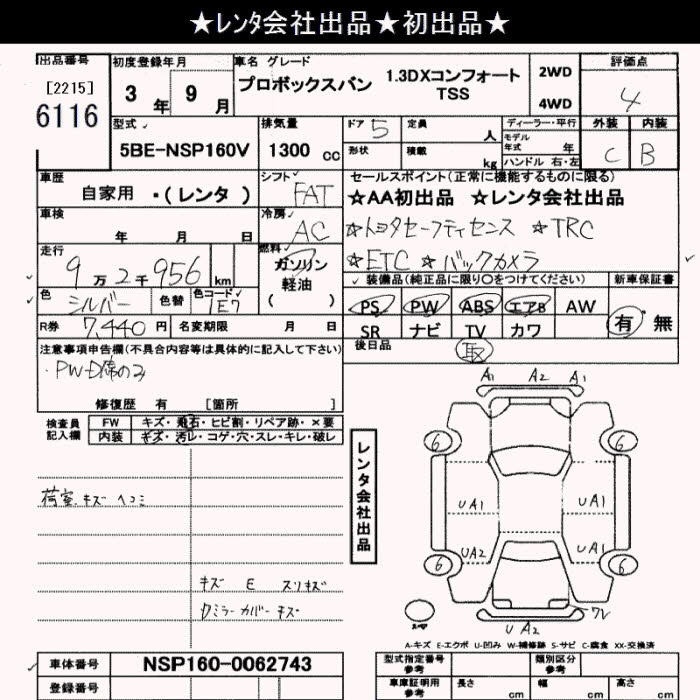 ★レンタ会社出品★初出品★
出品番号
[2215]
6116
初度登録年月
3 年 9 月
車名 グレード
プロボックスバン
1.3DXコンフォート
TSS
2WD
4WD
評価点
4
外装 内装
C B
型式
5BE-NSP160V
排気量
1300 cc
ドア 5
形状
定員 人
積載 kg
ディーラー・平行
モデル年式 年
ハンドル 右・左
車歴
自家用 ・(レンタ)
シフト
FAT
車検
年 月 日
冷房
AC
走行
9万2千956 km
燃料
ガソリン
軽油
( )
色 シルバー
色替
色コード
1E7
R券 7,440 円
名変期限 月 日
セールスポイント(正常に機能するものに限る)
☆AA初出品 ☆レンタ会社出品
☆トヨタセーフティセンス ☆TRC
☆ETC ☆バックカメラ
装備品(純正品に限り○をつけてください)
新車保証書
PS PW ABS エアB AW
SR ナビ TV カワ
有・無
後日品
取
注意事項申告欄(不具合内容等は具体的に記入して下さい)
・PW-D席のみ
修復歴 有 [箇所 ]
検査員
記入欄
FW キズ・飛石・ヒビ割・リペア跡・×要
内装 キズ・汚レ・コゲ・穴・スレ・キレ・破レ
荷室.キズ ヘコミ
キズ E スリキズ
ミラーカバーキズ
レンタ会社出品
A1 A2 A1
6 6
UA1 UA1
UA2 UA1
6 6
UA2
A-キズ E-エクボ U-凹み W-補修跡 S-サビ C-腐食 XX-交換済
車体番号 NSP160-0062743
登録番号
型式指定番号
参考
類別区分
参考
車庫証明用
参考
長さ cm
幅 cm
高さ cm